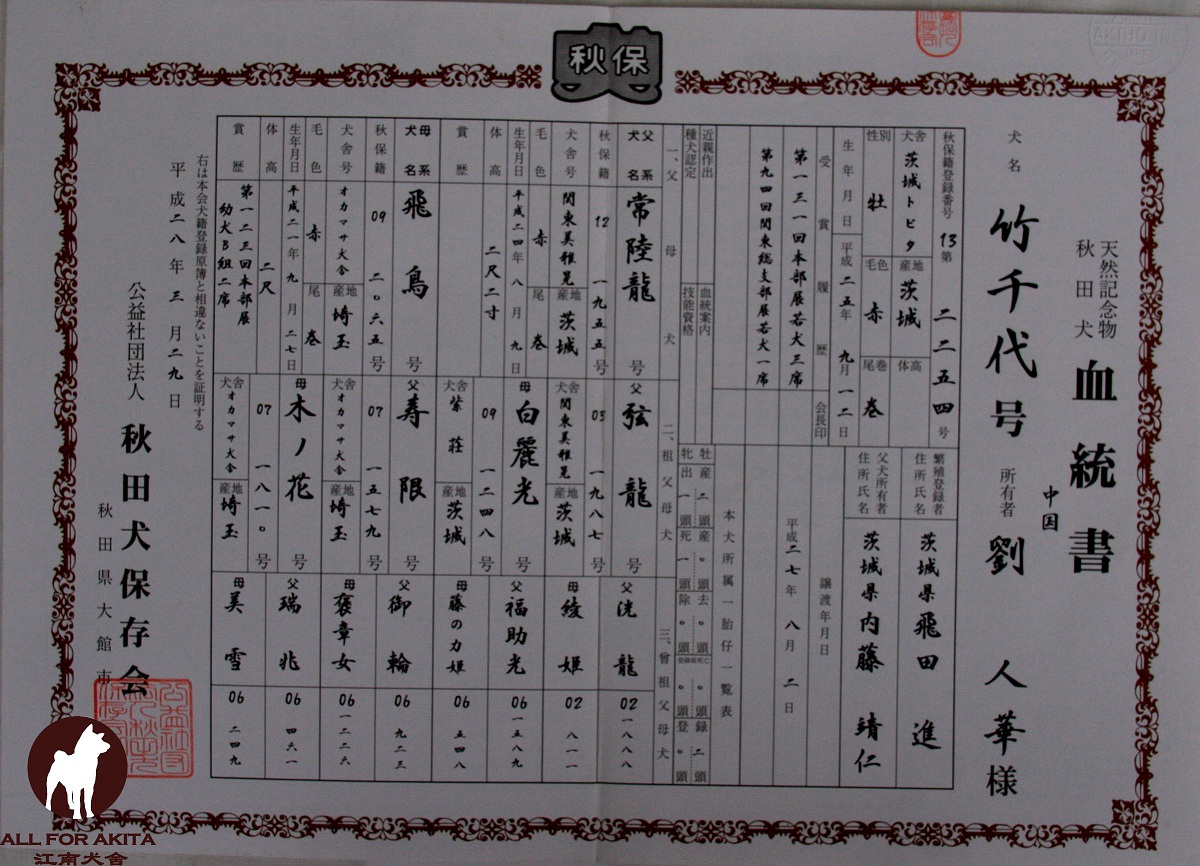 秋保
天然記念物
秋田犬
血統書
犬名
竹千代号
所有者
中国
劉人華様
秋保籍登録番号 13第二二五四号
犬舎 茨城トビタ
産地 茨城
体高
性別 牡
毛色 赤
尾巻 巻
生年月日 平成二五年九月一二日
受賞履歴
会長印
第一三一回本部展若犬三席
第九四回関東総支部展若犬一席
近親作出
血統案内
種犬認定
技能資格
繁殖登録者
住所氏名
茨城県飛田進
父犬所有者
住所氏名
茨城県内藤靖仁
譲渡年月日
平成二七年八月二日
本犬所属一胎仔一覧表
牡産二頭産〇頭去〇頭
〇頭録二頭
牝出一頭死一頭除〇頭
〇頭登〇頭
一、父母犬
二、祖父母犬
三、曾祖父母犬
父系犬名 常陸龍号
秋保籍 12 一九五五号
犬舎号 関東美雅晃
産地 茨城
毛色 赤
尾 巻
生年月日 平成二四年八月九日
体高 二尺二寸
賞歴
母系犬名 飛鳥号
秋保籍 09 二〇六五号
犬舎号 オカマサ犬舎
産地 埼玉
毛色 赤
尾 巻
生年月日 平成二一年九月二七日
体高 二尺
賞歴 第一二三回本部展
幼犬B組二席
父 弦龍号
03 一九八七号
犬舎 関東美雅晃
産地 茨城
母 白麗光号
09 一二四八号
犬舎 紫荘
産地 茨城
父 寿限号
07 一五七九号
犬舎 オカマサ犬舎
産地 埼玉
母 木ノ花号
07 一八一〇号
犬舎 オカマサ犬舎
産地 埼玉
父 洸龍 02 一八八八
母 綾姫 02 八一一
父 福助光 06 一五八九
母 藤の力姫 06 五四八
父 御輪 06 九二三
母 褒章女 06 一二二六
父 瑞兆 06 四六一
母 美雪 06 二四九
右は本会犬籍登録原簿と相違ないことを証明する
平成二八年三月二九日
公益社団法人
秋田犬保存会
秋田県大館市
ALL FOR AKITA
江南犬舍